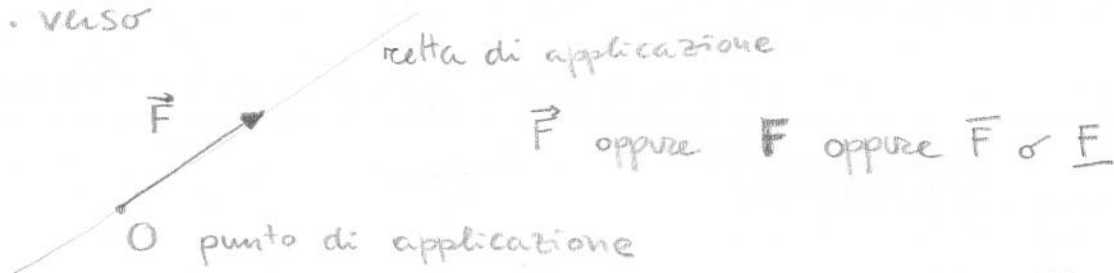 . verso
retta di applicazione
F⃗
F⃗ oppure 𝐅 oppure F̅ o F̲
O punto di applicazione